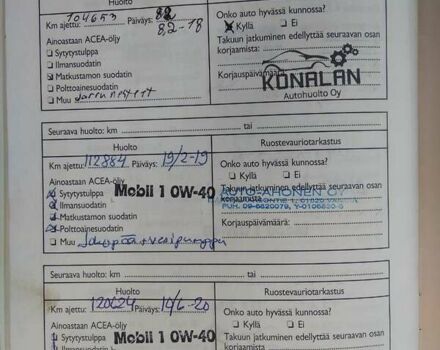 Huolto
Km ajettu: 104653 Päiväys: 8.2-18
Ainoastaan ACEA-öljy
☐ Sytytystulppa
☐ Ilmansuodatin
☒ Matkustamon suodatin
☐ Polttoainesuodatin
☐ Muu
Onko auto hyvässä kunnossa?
☒ Kyllä ☐ Ei
Takuun jatkuminen edellyttää seuraavan osan
korjaamista:
Korjauspäivämäärä:
KONALAN
Autohuolto Oy
Seuraava huolto: km ... tai
Huolto
Km ajettu: 112884 Päiväys: 19/2-19
Ainoastaan ACEA-öljy
Sytytystulppa
Mobil 1 0W-40
Ilmansuodatin
☐ Matkustamon suodatin
Polttoainesuodatin
☐ Muu
Ruostevauriotarkastus
Onko auto hyvässä kunnossa?
☐ Kyllä ☐ Ei
Takuun jatkuminen edellyttää seuraavan osan
korjaamista
AUTO-AHONEN OY
Korjauspäivämäärä:
Seuraava huolto: km ... tai
Huolto
Km ajettu: 120624 Päiväys: 14/6-20
Ainoastaan ACEA-öljy
Sytytystulppa
Mobil 1 0W-40
Ilmansuodatin
Ruostevauriotarkastus
Onko auto hyvässä kunnossa?
☐ Kyllä ☐ Ei
Takuun jatkuminen edellyttää seuraavan osan
korjaamista: